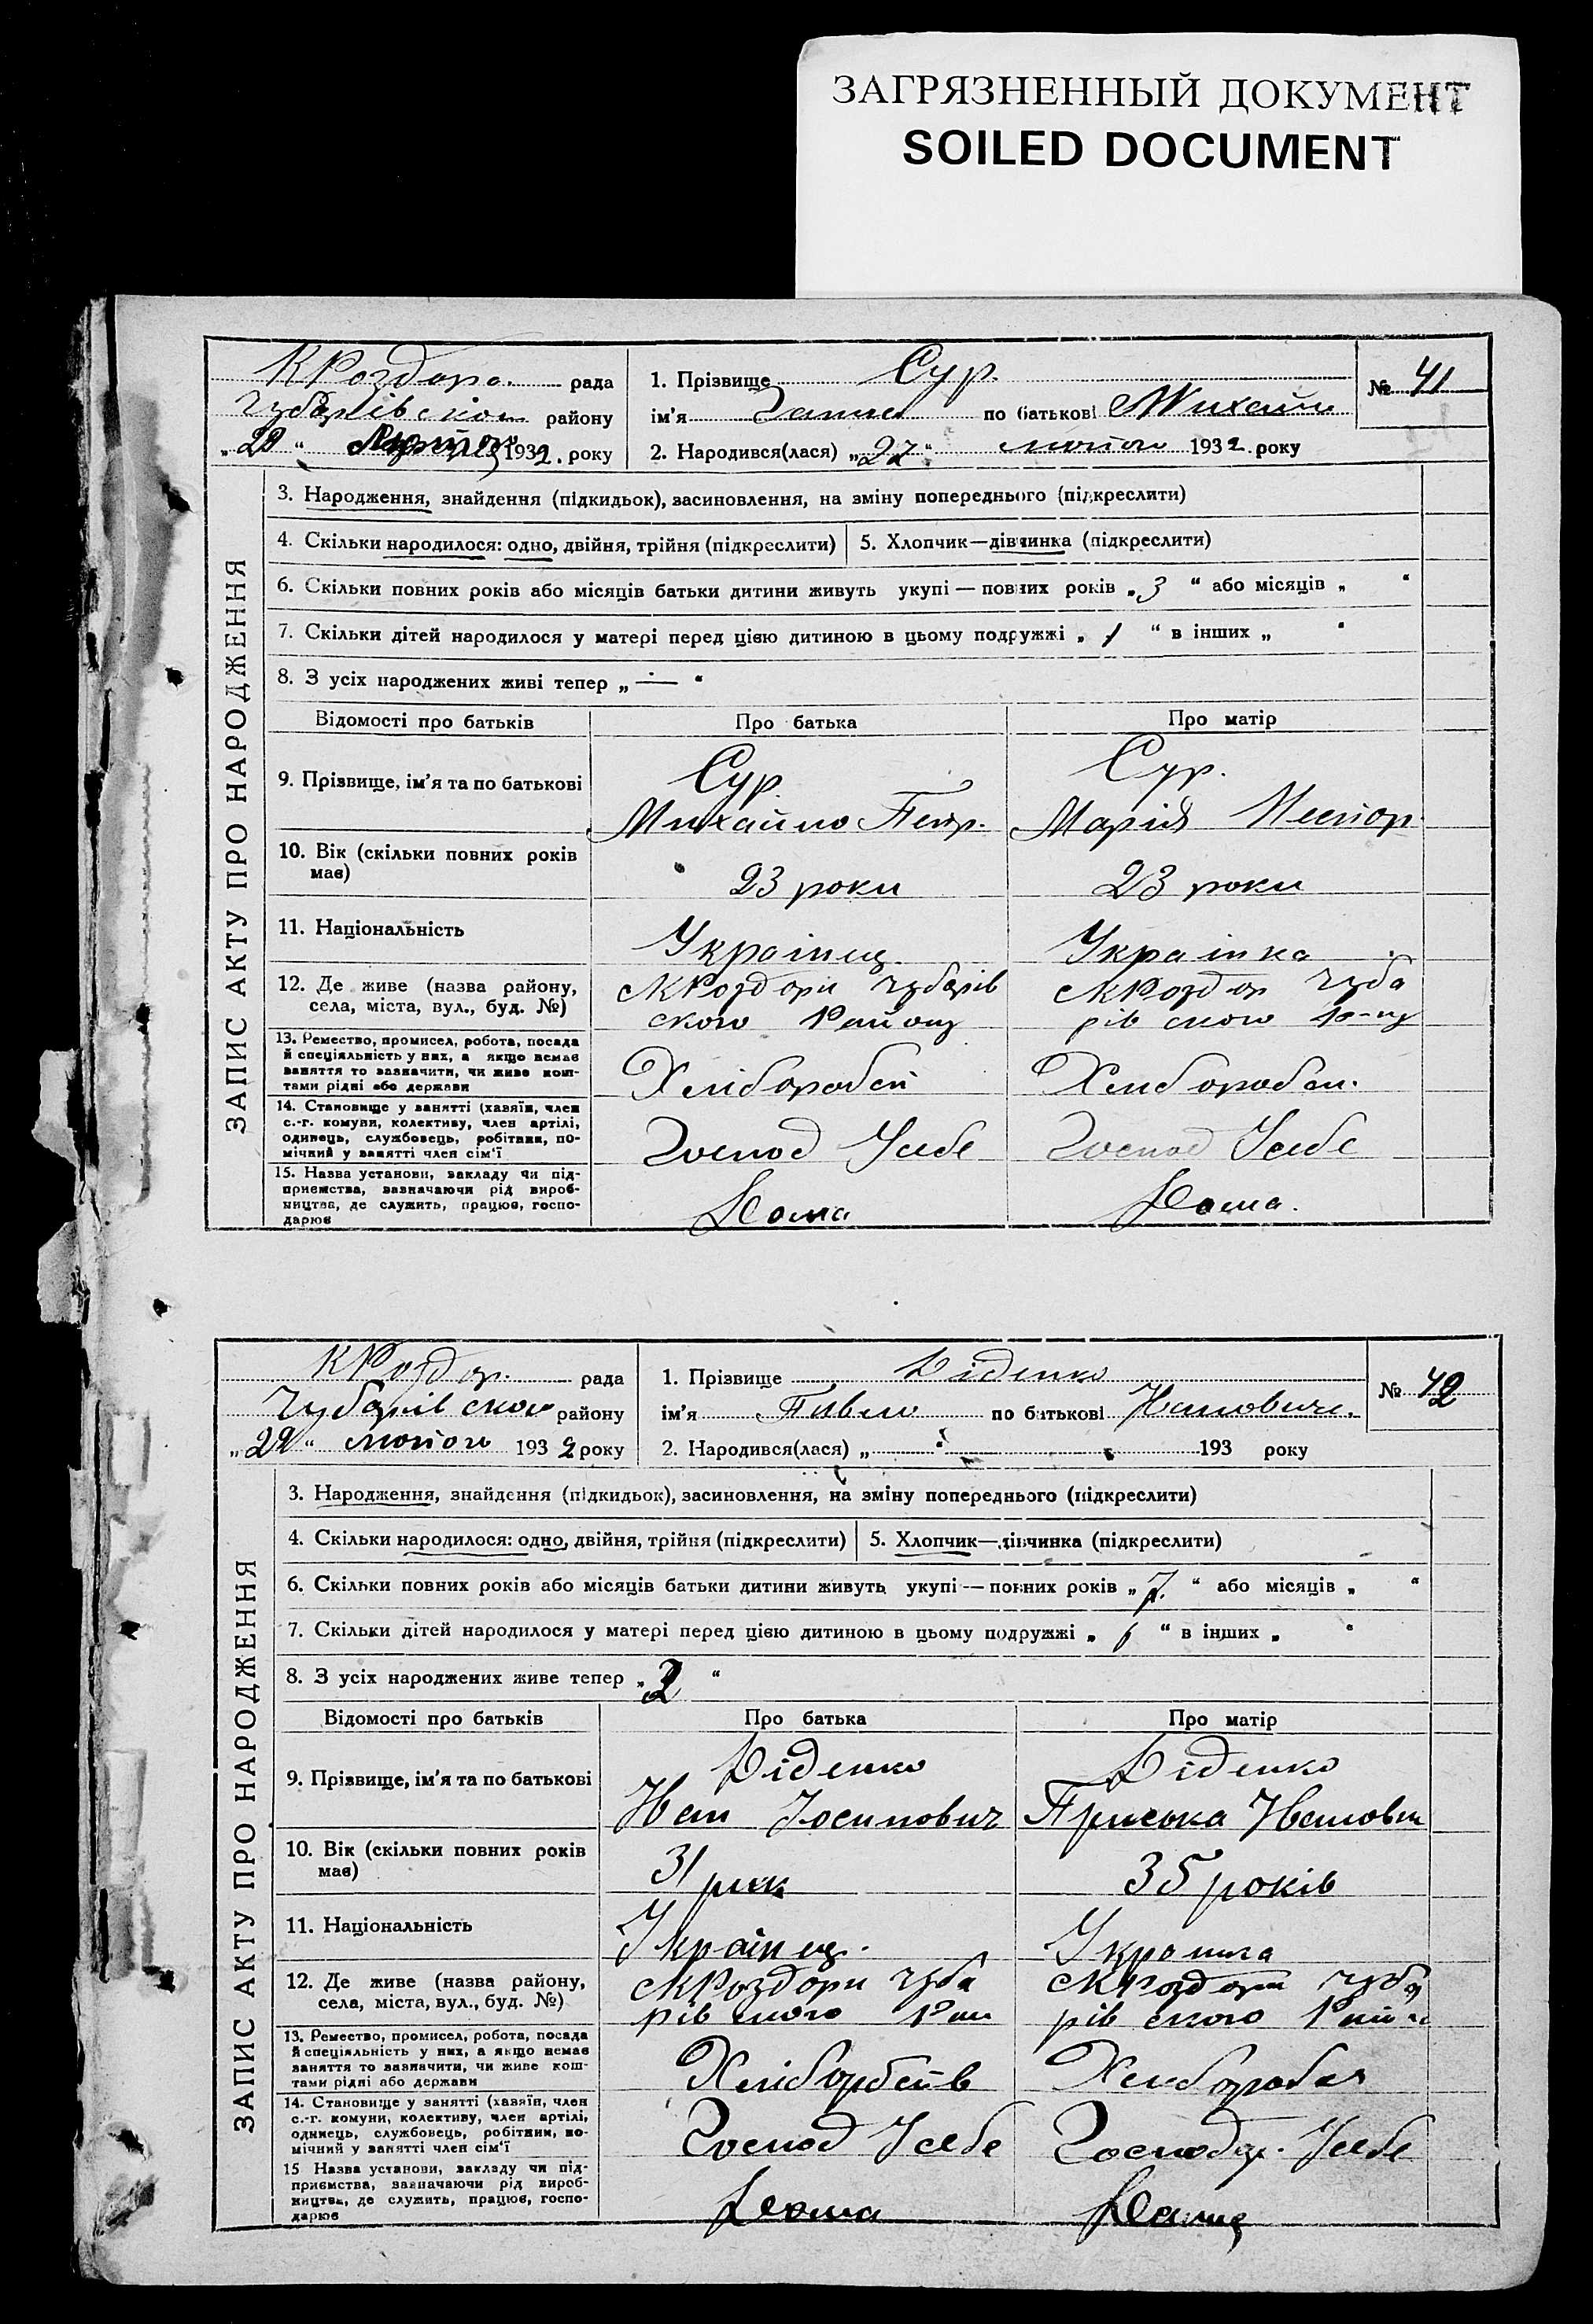 ЗАГРЯЗНЕННЫЙ ДОКУМЕНТ
SOILED DOCUMENT
ЗАПИС АКТУ ПРО НАРОДЖЕННЯ
КРоздор. рада
Чубарівсько району
„22“ 1932. року
1. Прізвище Сур.
ім’я Ганна по батькові Михайл
2. Народився(лася) „22“ лютого 1932. року
№ 41
3. Народження, знайдення (підкидьок), засиновлення, на зміну попереднього (підкреслити)
4. Скільки народилося: одно, двійня, трійня (підкреслити) 5. Хлопчик—дівчинка (підкреслити)
6. Скільки повних років або місяців батьки дитини живуть укупі — повних років „3“ або місяців „ “
7. Скільки дітей народилося у матері перед цією дитиною в цьому подружжі „1“ в інших „ “
8. З усіх народжених живі тепер „—“
Відомості про батьків Про батька Про матір
9. Прізвище, ім’я та по батькові
Сур. Сур.
Михайло Петр. Марія Нестор
10. Вік (скільки повних років
має)
23 роки 23 роки
11. Національність
Україиец Українка
12. Де живе (назва району,
села, міста, вул., буд. №)
с КРоздори Чубарів с КРоздор Чуба
ского Району рів ского Р-ну
13. Ремество, промисел, робота, посада
й спеціяльність у них, а якщо немає
заняття то зазначити, чи живе кош-
тами рідні або держави
Хлібороб
14. Становище у занятті (хазяїн, член
с.-г. комуни, колективу, член артілі,
одинець, службовець, робітник, по-
мічний у занятті член сім’ї
Господ У себе Господ У себе
15. Назва установи, закладу чи під-
приємства, зазначаючи рід вироб-
ництва, де служить, працює, госпо-
дарює
Дома Дома.
ЗАПИС АКТУ ПРО НАРОДЖЕННЯ
КРоздор. рада
Чубарівсько району
„22“ лютого 1932 року
1. Прізвище Діденко
ім’я Павло по батькові Іванович.
2. Народився(лася) „ “ 193 року
№ 42
3. Народження, знайдення (підкидьок), засиновлення, на зміну попереднього (підкреслити)
4. Скільки народилося: одно, двійня, трійня (підкреслити) 5. Хлопчик—дівчинка (підкреслити)
6. Скільки повних років або місяців батьки дитини живуть укупі — повних років „7.“ або місяців „ “
7. Скільки дітей народилося у матері перед цією дитиною в цьому подружжі „ “ в інших „ “
8. З усіх народжених живе тепер „ “
Відомості про батьків Про батька Про матір
9. Прізвище, ім’я та по батькові
Діденко Діденко
Іван Йосипович Приська Івановна
10. Вік (скільки повних років
має)
31 рик 35 років
11. Національність
Україиец. Украінка
12. Де живе (назва району,
села, міста, вул., буд. №)
с КРоздори Чуба с КРоздори Чуба
рів ского Рай рів ского Рай
13. Ремество, промисел, робота, посада
й спеціяльність у них, а якщо немає
заняття то зазначити, чи живе кош-
тами рідні або держави
14. Становище у занятті (хазяїн, член
с.-г. комуни, колективу, член артілі,
одинець, службовець, робітник, по-
мічний у занятті член сім’ї
Господ У себе Господар. У себе
15 Назва установи, закладу чи під-
приємства, зазначаючи рід вироб-
ництва, де служить, працює, госпо-
дарює
Дома Дома